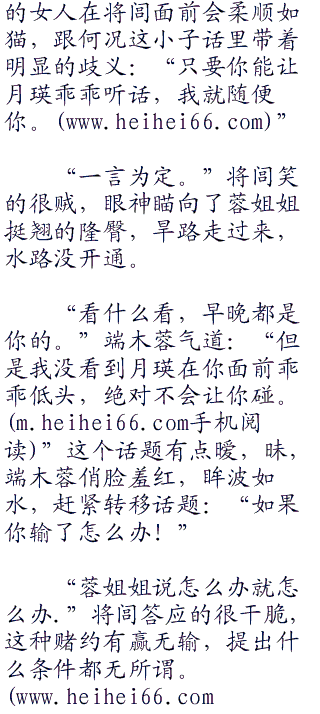 的女人在将闾面前会柔顺如
猫，跟何况这小子话里带着
明显的歧义：“只要你能让
月瑛乖乖听话，我就随便
你。(www.heihei66.com)”
“一言为定。”将闾笑
的很贼，眼神瞄向了蓉姐姐
挺翘的隆臀，旱路走过来，
水路没开通。
“看什么看，早晚都是
你的。”端木蓉气道：“但
是我没看到月瑛在你面前乖
乖低头，绝对不会让你碰。
(m.heihei66.com手机阅
读)”这个话题有点暧，昧，
端木蓉俏脸羞红，眸波如
水，赶紧转移话题：“如果
你输了怎么办！”
“蓉姐姐说怎么办就怎
么办.”将闾答应的很干脆，
这种赌约有赢无输，提出什
么条件都无所谓。
(www.heihei66.com